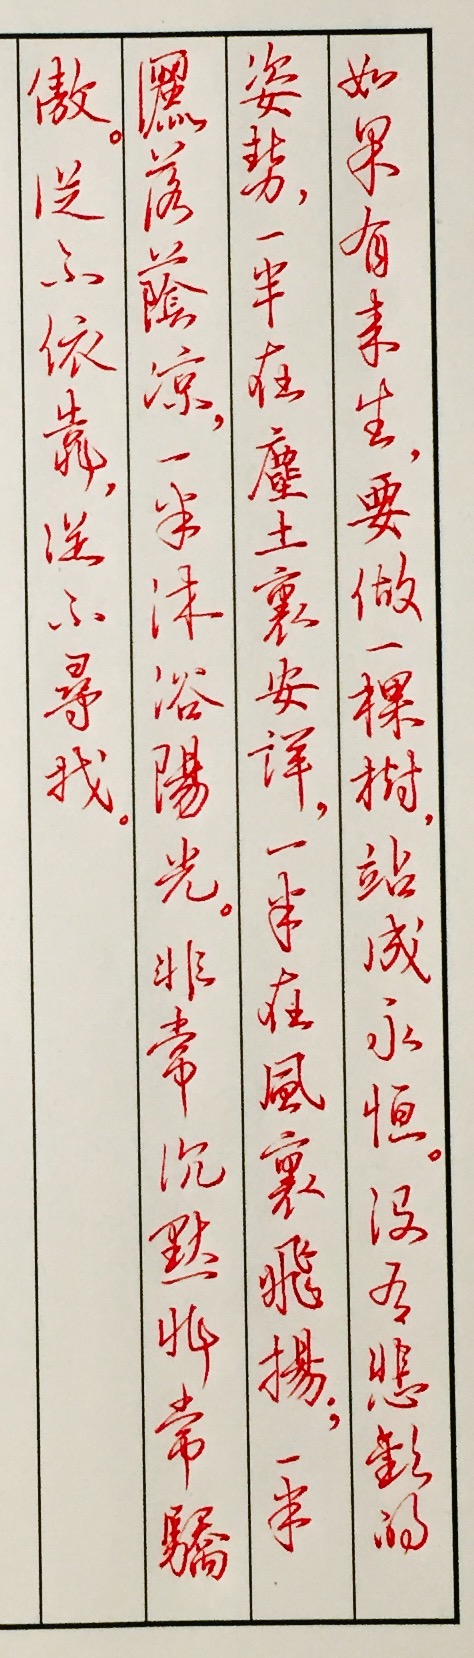 如果有来生,要做一棵樹,站成永恒。没有悲歡的
姿勢,一半在塵土裏安詳,一半在風裏飛揚;一半
灑落蔭凉,一半沐浴陽光。非常沉默非常驕
傲。從不依靠,從不尋找。